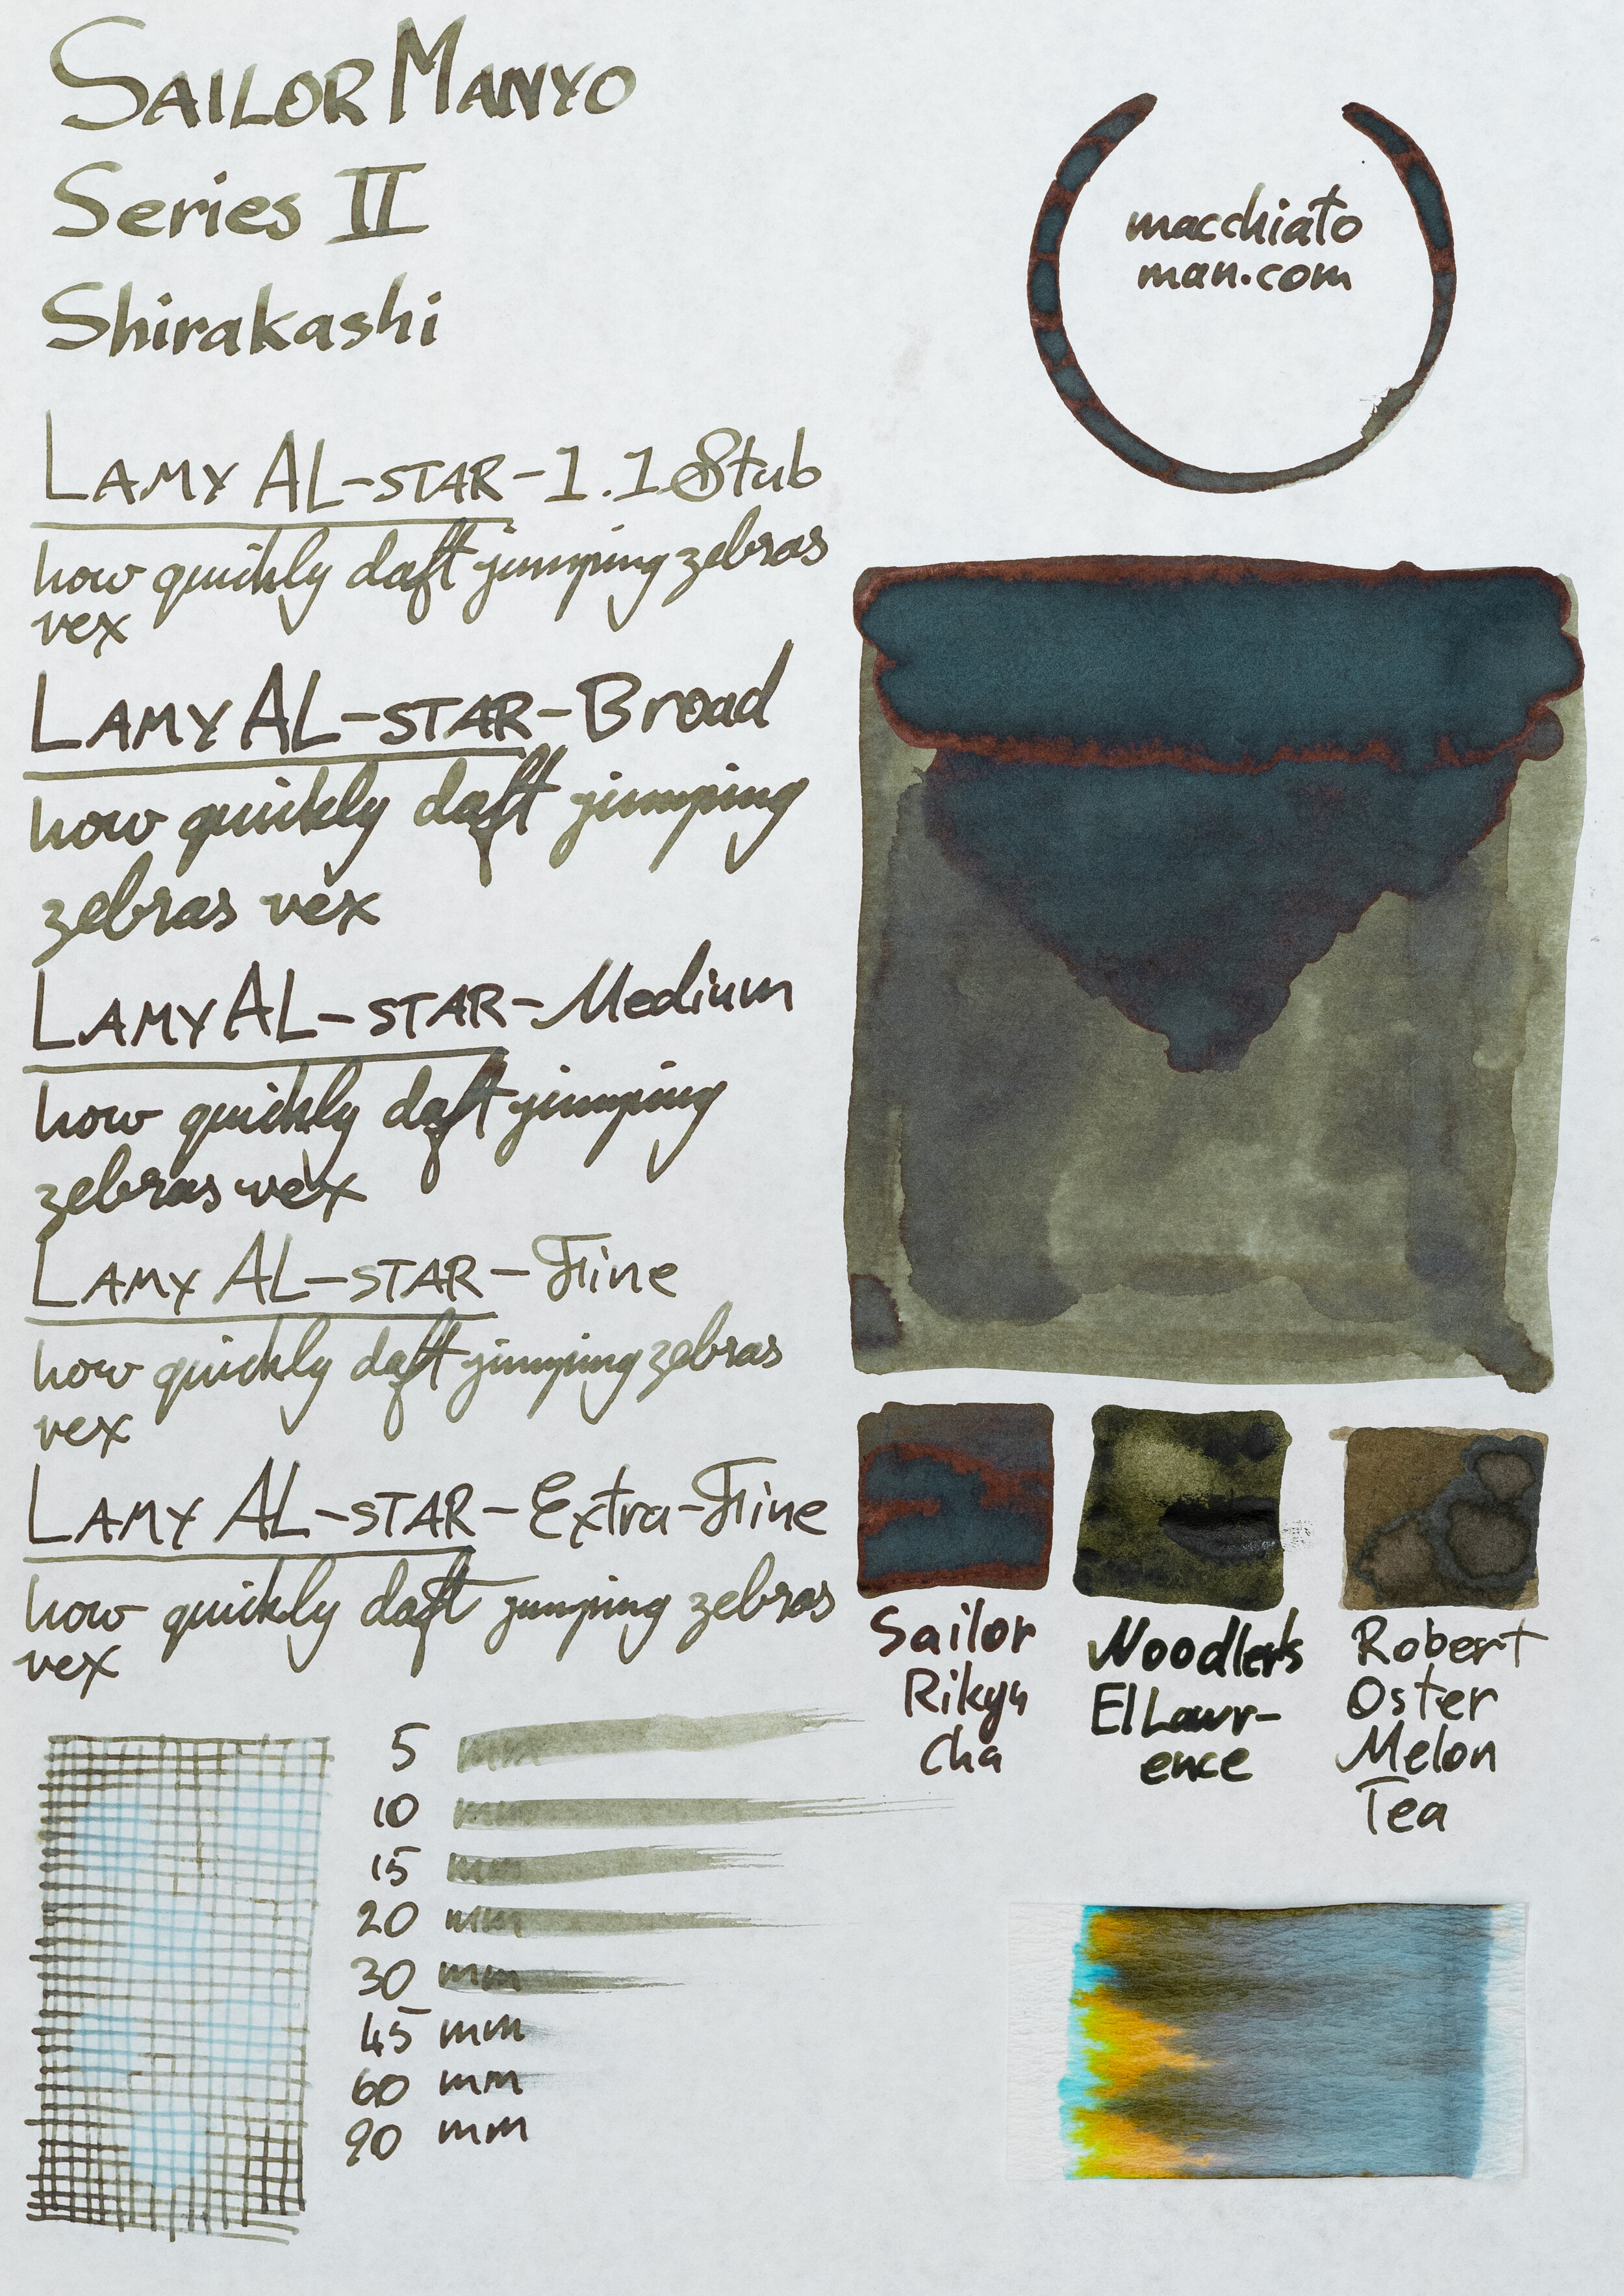 SAILOR MANYO
Series II
Shirakashi
LAMY AL-STAR-1.1 Stub
how quickly daft jumping zebras
vex
LAMY AL-STAR-Broad
how quickly daft jumping
zebras vex
LAMY AL-STAR-Medium
how quickly daft jumping
zebras vex
LAMY AL-STAR-Fine
how quickly daft jumping zebras
vex
LAMY AL-STAR-Extra-Fine
how quickly daft jumping zebras
vex
5 mm
10 mm
15 mm
20 mm
30 mm
45 mm
60 mm
90 mm
macchiato
man.com
Sailor
Rikyu
Cha
Noodler's
El Lawr-
ence
Robert
Oster
Melon
Tea